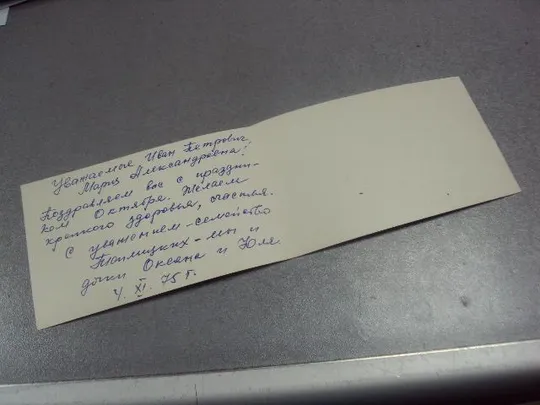 Уважаемые Иван Петрович,
Мария Александровна!
Поздравляем вас с праздни-
ком Октября. Желаем
крепкого здоровья, счастья.
С уважением - семейство
- мы и
дочки Оксана и Юля
4. XI. 75 г.